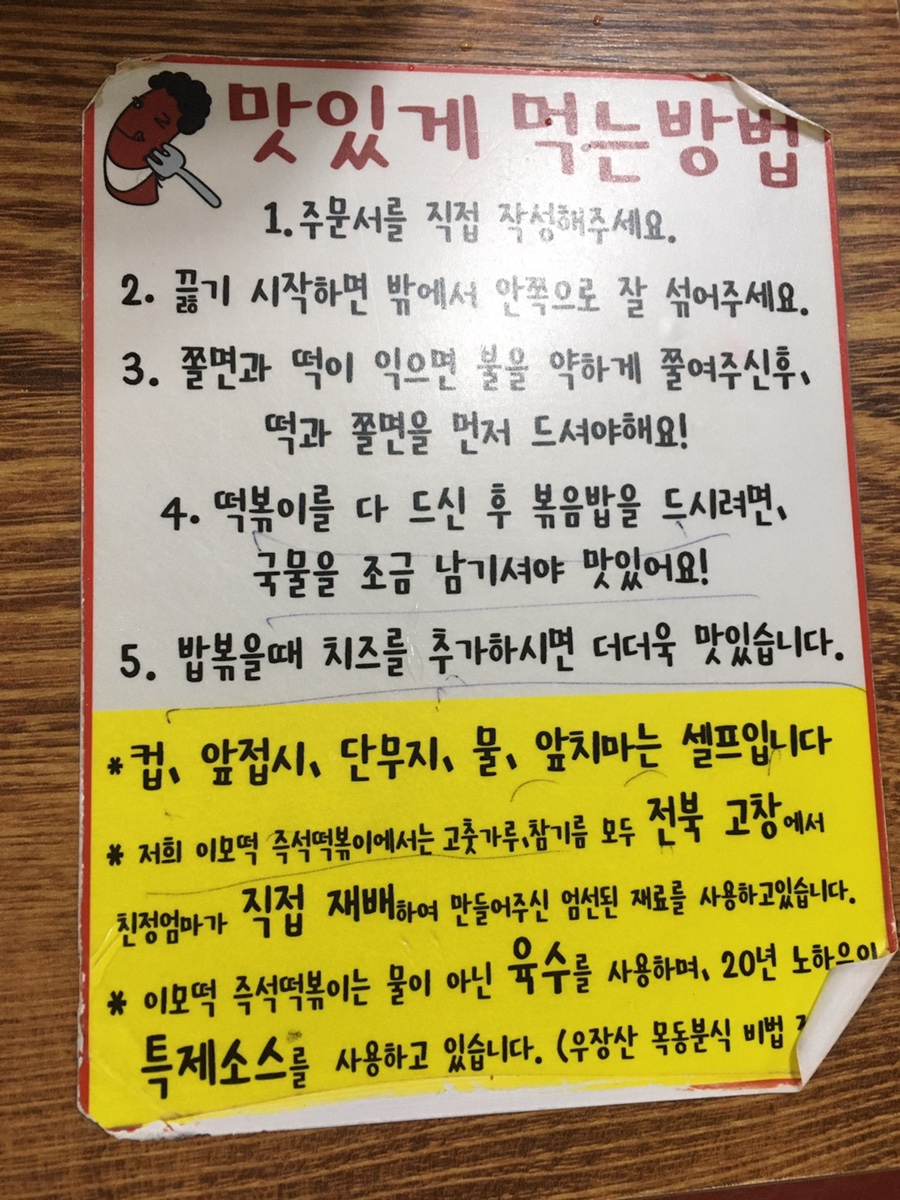 맛있게 먹는방법
1.주문서를 직접 작성해주세요.
2. 끓기 시작하면 밖에서 안쪽으로 잘 섞어주세요.
3. 쫄면과 떡이 익으면 불을 약하게 쭐여주신후,
떡과 쫄면을 먼저 드셔야해요!
4. 떡볶이를 다 드신 후 볶음밥을 드시려면,
국물을 조금 남기셔야 맛있어요!
5. 밥볶을때 치즈를 추가하시면 더더욱 맛있습니다.
*컵, 앞접시, 단무지, 물, 앞치마는 셀프입니다
* 저희 이모떡 즉석떡볶이에서는 고춧가루,참기름 모두 전북 고창에서
친정엄마가 직접 재배하여 만들어주신 엄선된 재료를 사용하고있습니다.
* 이모떡 즉석떡볶이는 물이 아닌 육수를 사용하며, 20년 노하우의
특제소스를 사용하고 있습니다. (우장산 목동분식 비법